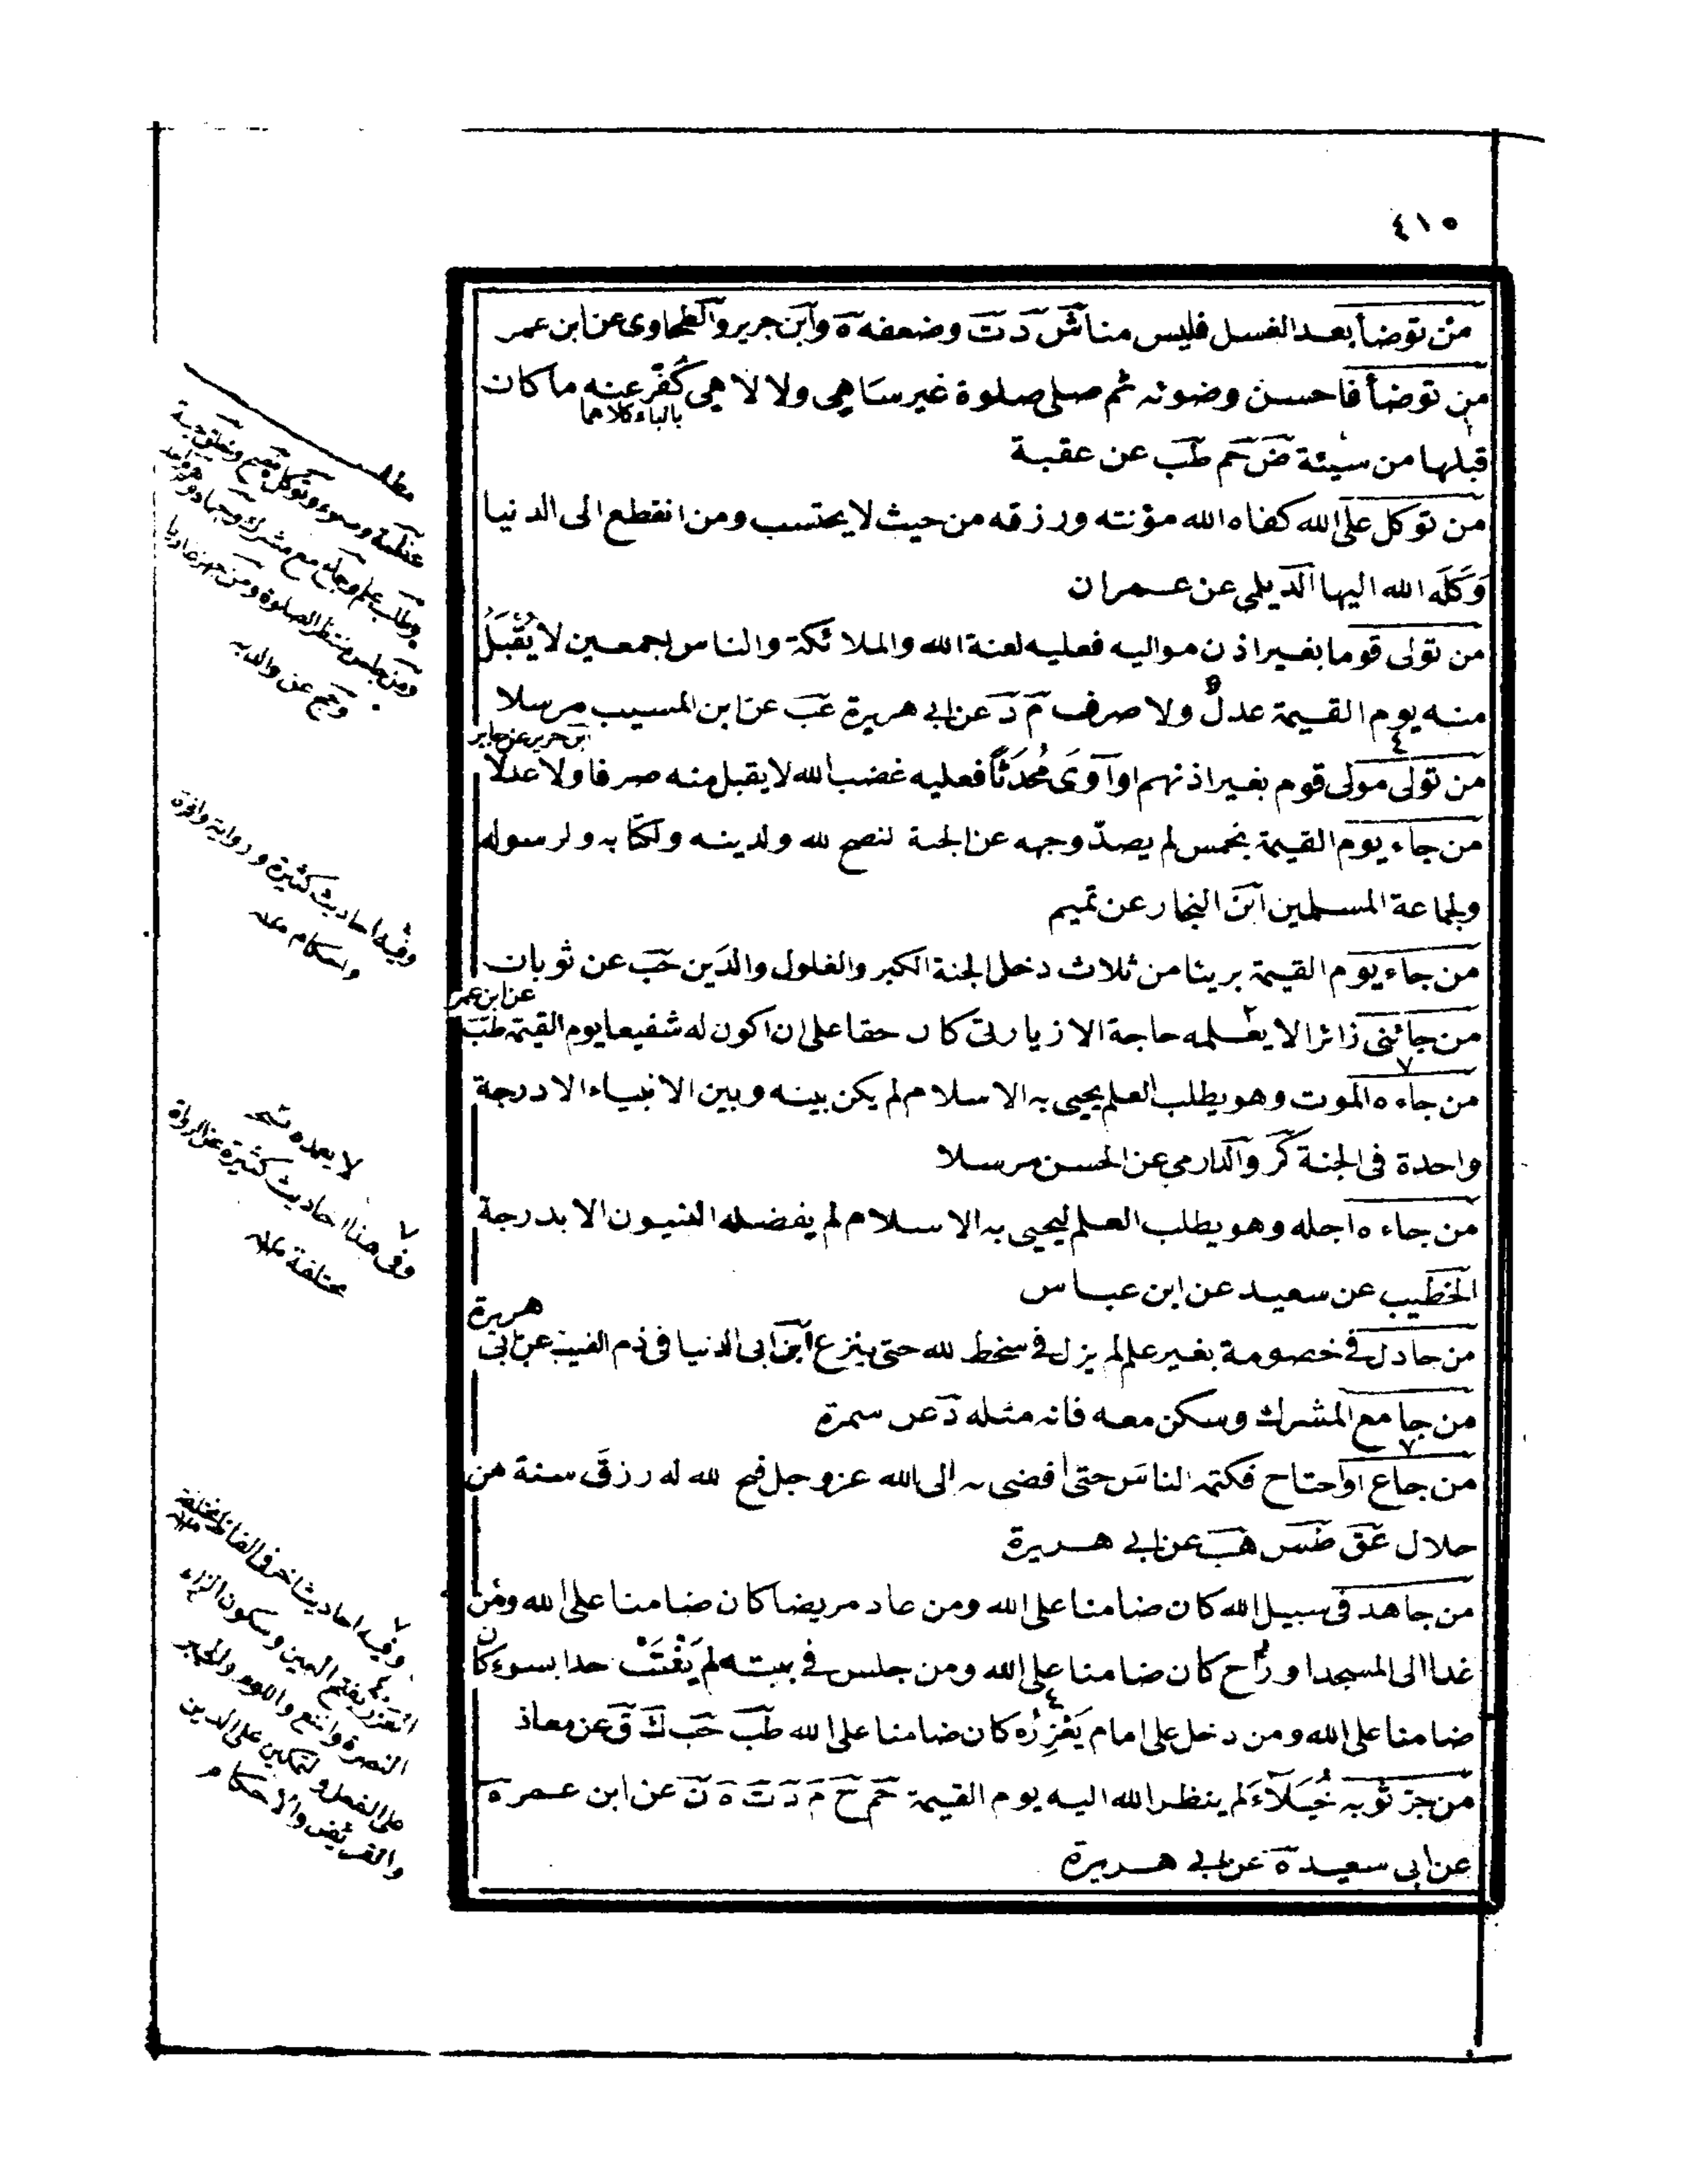 ٤١٥
من توضأ بعد الغسل فليس منا ش د ت وضعفه ه وابن جرير والطحاوى عن ابن عمر
من توضأ فاحسن وضوئه ثم صلى صلوة غير ساهى ولا لاهى كُفّر عنه ما كان
بالباء كلاهما
قبلها من سيئة ض حم طب عن عقبة
من توكل على الله كفاه الله مؤنته ورزقه من حيث لا يحتسب ومن انقطع الى الدنيا
وَكَلَه الله اليها الديلمى عن عمران
من تولى قوما بغير اذن مواليه فعليه لعنة الله والملائكة والناس اجمعين لا يُقْبَلُ
منه يوم القيمة عدلٌ ولا صرف م د عن ابى هريرة عب عن ابن المسيب مرسلا
ابن جرير عن جابر
من تولى مولى قوم بغير اذنهم او آوَى مُحْدَثًا فعليه غضب الله لا يقبل منه صرفا ولا عدلا
من جاء يوم القيمة بخمس لم يصدّ وجهه عن الجنة لنصح لله ولدينه ولكتابه ولرسوله
ولجماعة المسلمين ابن النجار عن تميم
من جاء يوم القيمة بريئا من ثلاث دخل الجنة الكبر والغلول والدَين حب عن ثوبان
عن ابن عمر
من جائنى زائرا لا يعلمه حاجة الا زيارتى كان حقا على ان اكون له شفيعا يوم القيمة طب
من جاءه الموت وهو يطلب العلم يحيى به الاسلام لم يكن بينه وبين الانبياء الا درجة
واحدة فى الجنة كر والدارمى عن الحسن مرسلا
من جاءه اجله وهو يطلب العلم ليحيى به الاسلام لم يفضله النبيون الا بدرجة
الخطيب عن سعيد عن ابن عباس
هريرة
من جادل فى خصومة بغير علم لم يزل فى سخط لله حتى ينزع ابن ابى الدنيا فى ذم الغيبة عن ابى
من جامع المشرك وسكن معه فانه مثله د عن سمرة
من جاع او احتاج فكتمه الناس حتى افضى به الى الله عز وجل فتح لله له رزق سنة من
حلال عق طس هب عن ابى هريرة
من جاهد فى سبيل الله كان ضامنا على الله ومن عاد مريضا كان ضامنا على الله ومن
غدا الى المسجد او راح كان ضامنا على الله ومن جلس فى بيته لم يَغْتَبْ احدا بسوء كان
ضامنا على الله ومن دخل على امام يَعْزِرُه كان ضامنا على الله طب حب ك ق عن معاذ
من جرّ ثوبه خُيَلآءَ لم ينظر الله اليه يوم القيمة حم خ م د ت ه ن عن ابن عمر ه
عن ابى سعيد ه عن ابى هريرة
مطلب
وحج عن والديه
وفيه احاديث كثيرة ورواية وافرة
واحكام منه
لا يعمده نسخه
وفى هذا احاديث كثيرة عن الرواة
مختلفة منه
وفيه احاديث اخر فى الفاظ مختلفة
منه
العزر بفتح العين وسكون الزاء
النصرة والمنع واللوم والجبر
على الفعل والتمكين على الدين
والفرائض والاحكام